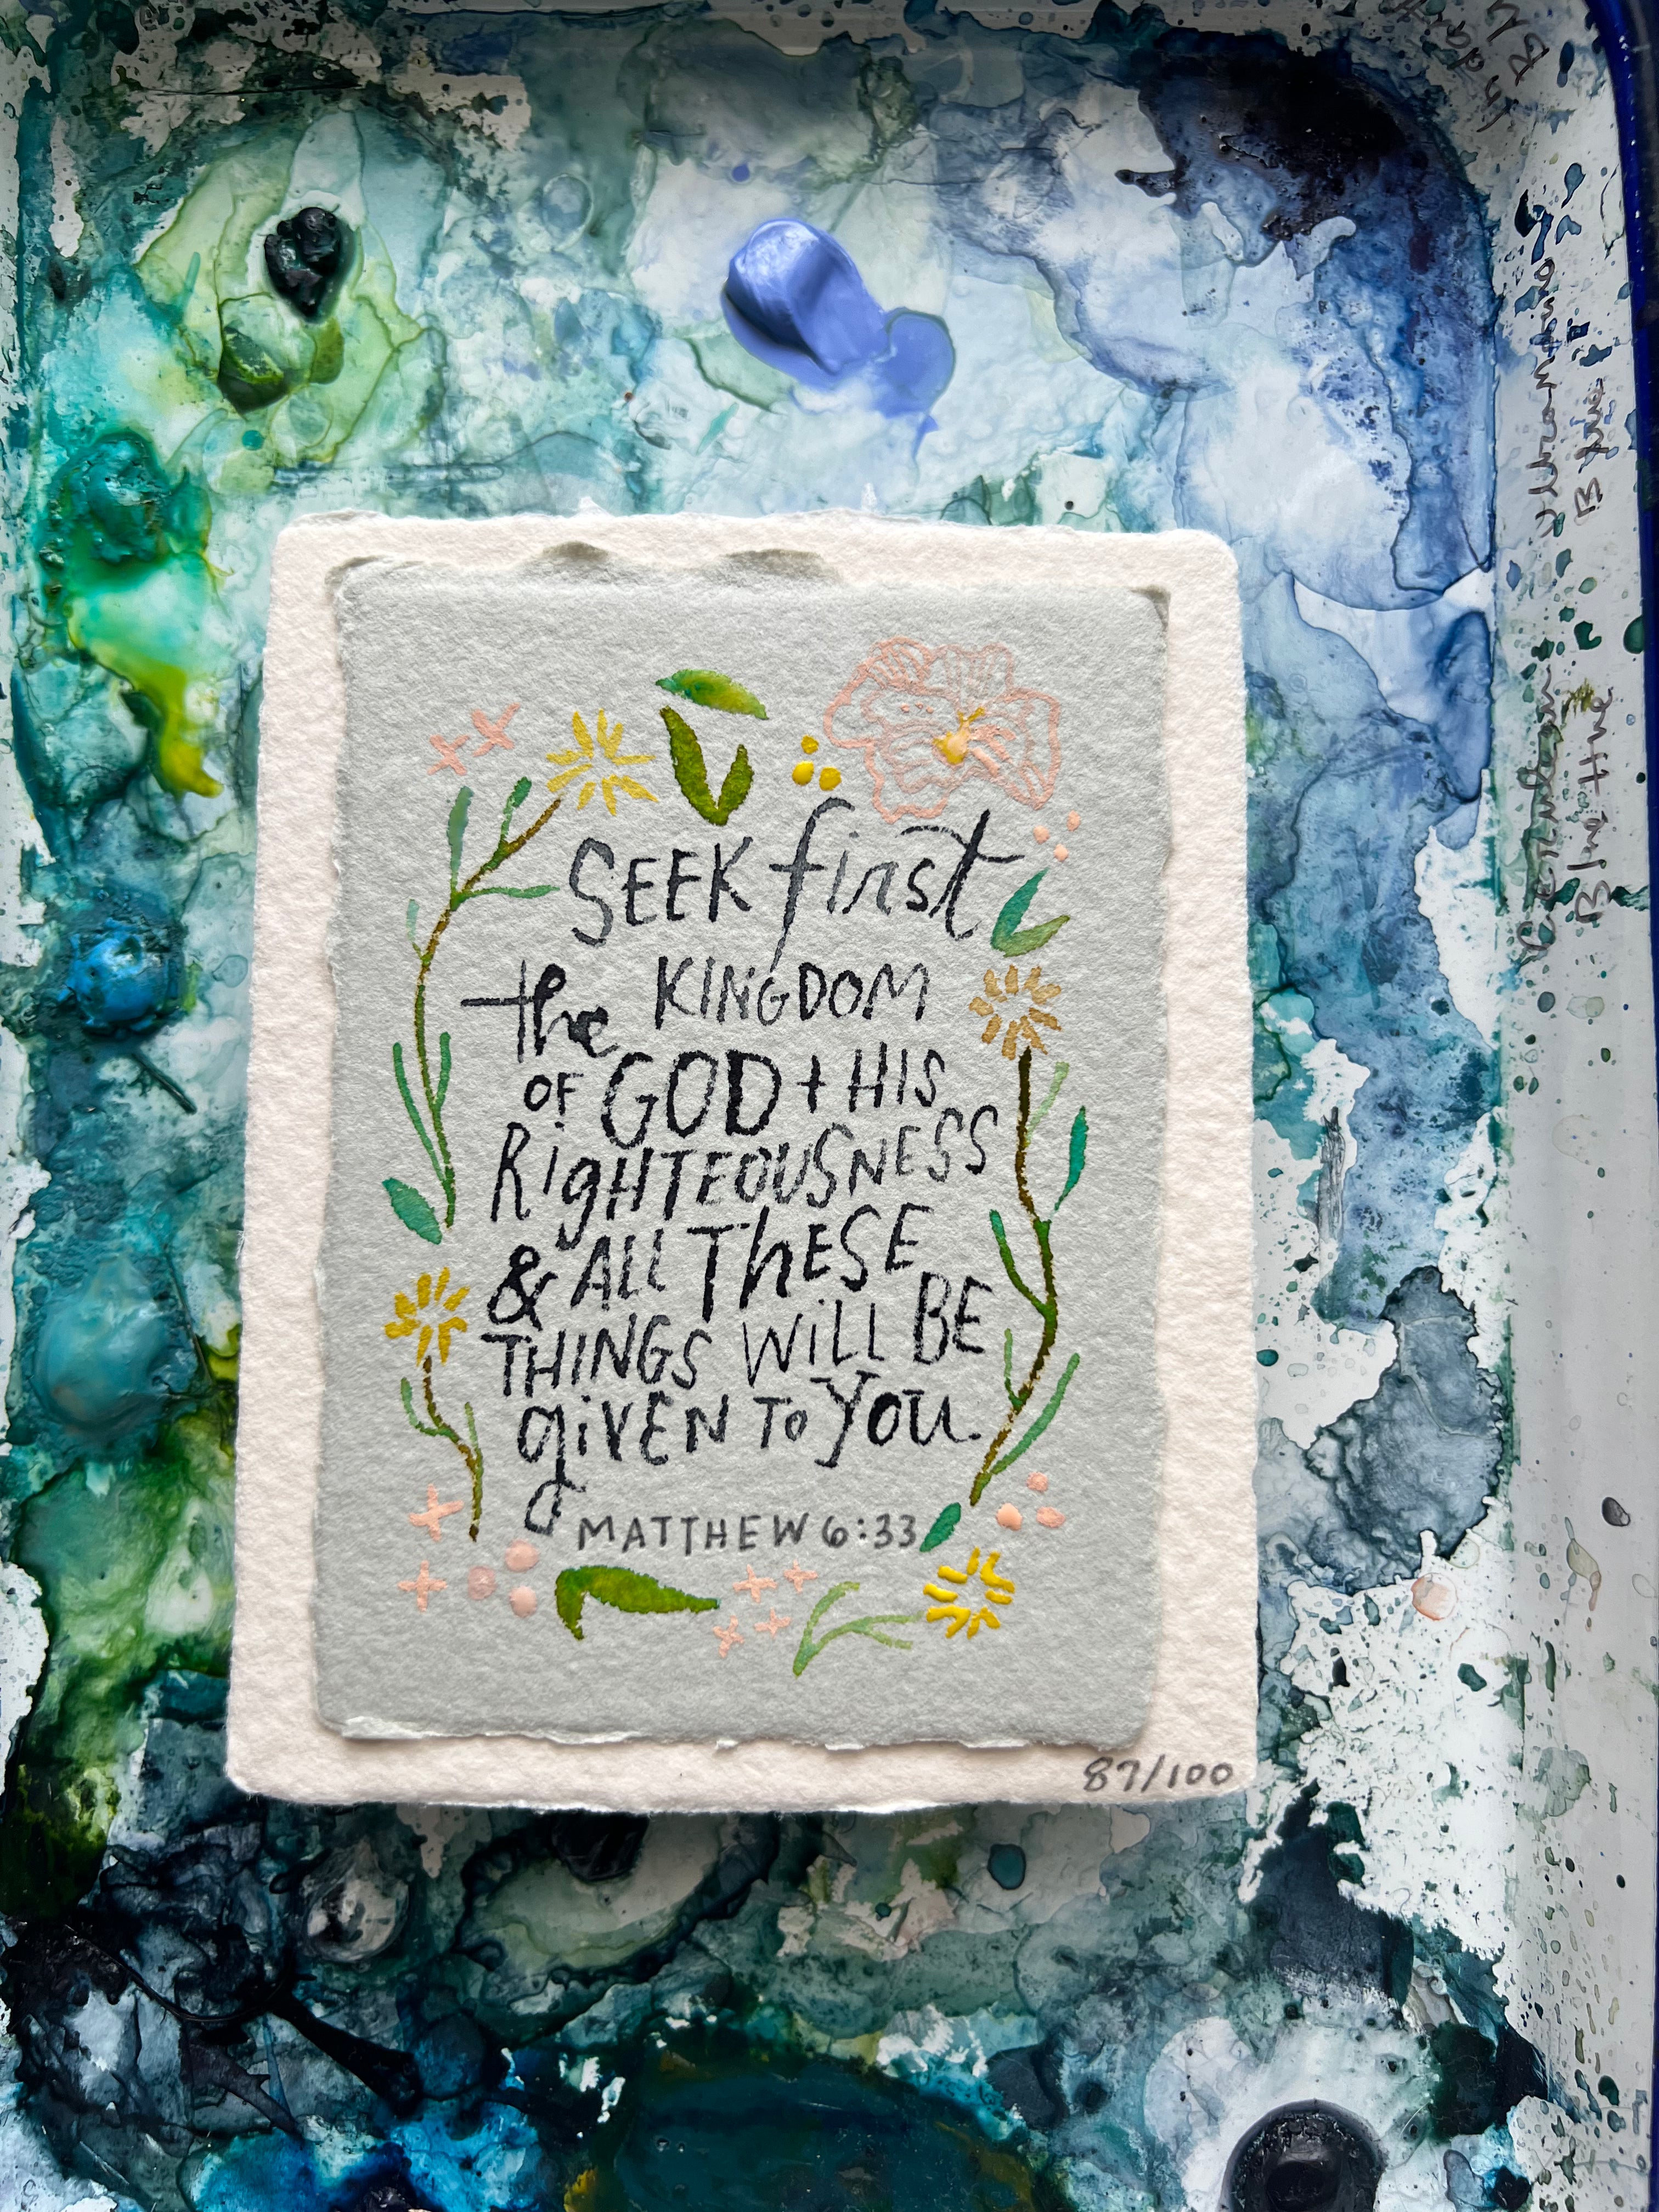 SEEK first
the KINGDOM
OF GOD + HIS
RiGHTEOUSNESS
& ALL ThESE
THINGS WiLL BE
giVEN To YOU.
MATTHEW 6:33
87/100
Ultramarine
Blue
Cerulean
Blue Hue